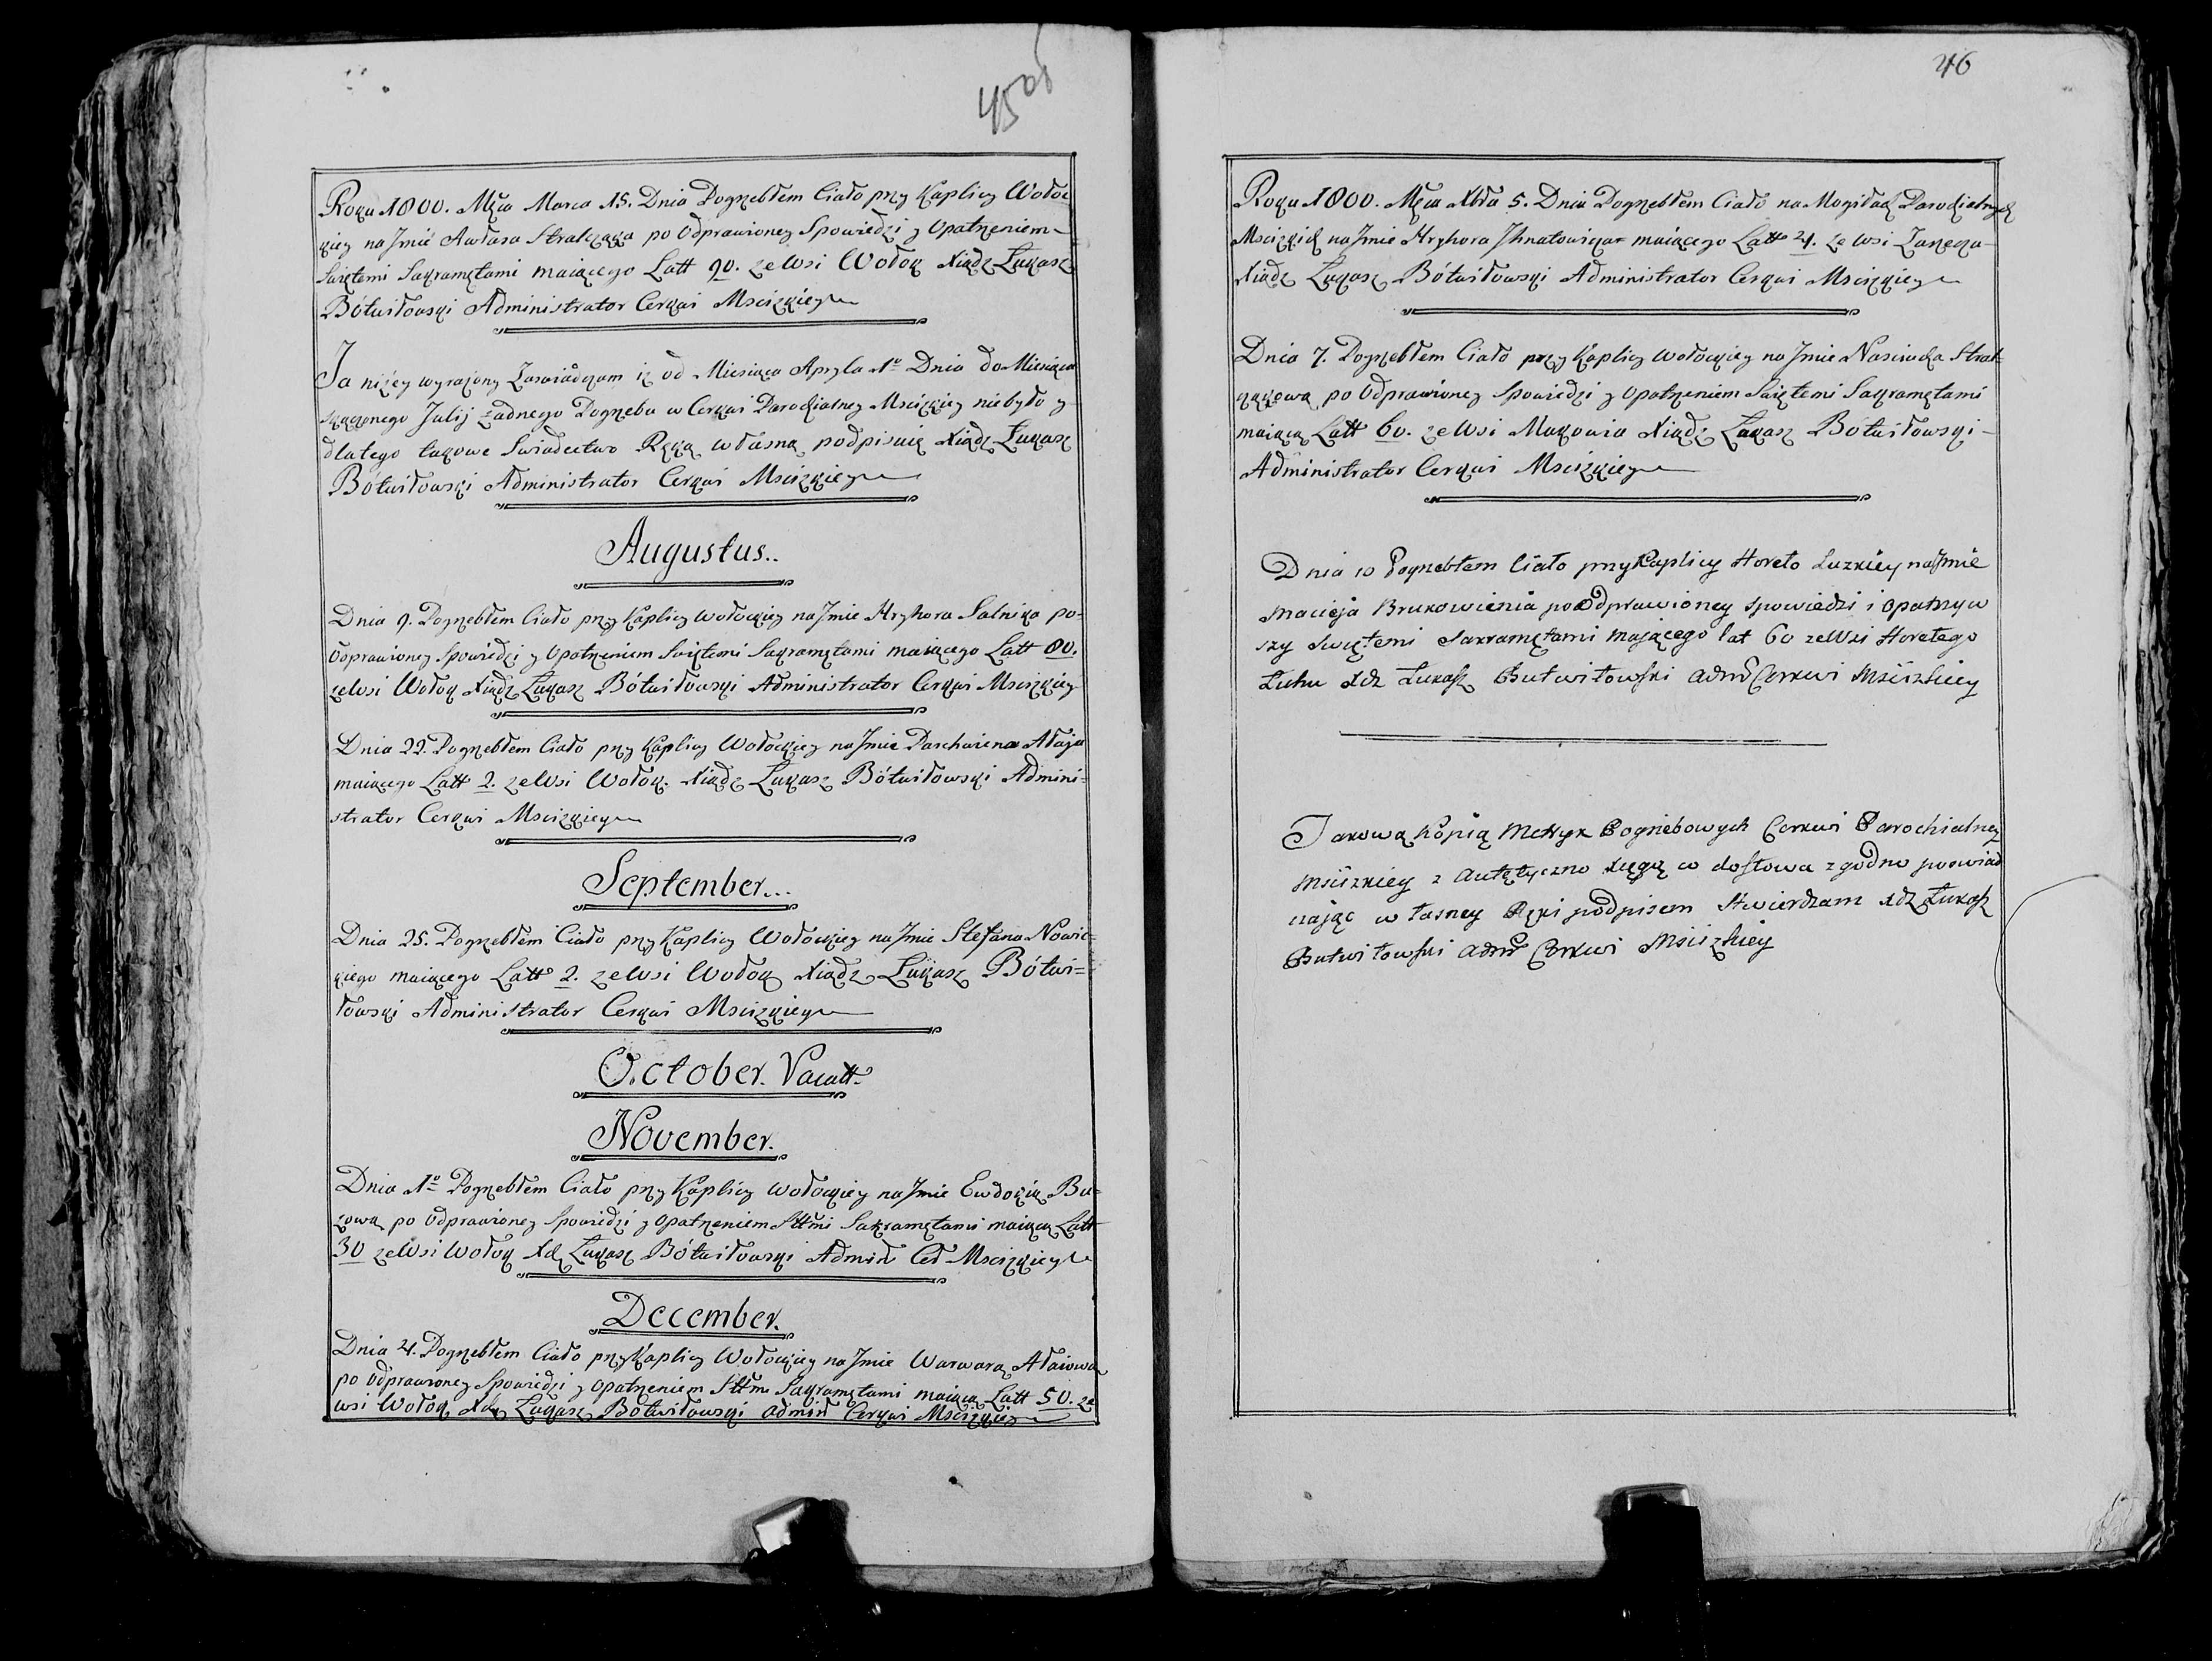 45 об
Roku 1800. Mca Marca 15. Dnia Pogrzebłem Ciało przy Kaplicy Wołoc
kiey na Jmie Awłasa Stralczaka po Odprawioney Spowiedzi y Opatrzeniem
Swiętemi Sakramętami maiącego Latt 90. ze Wsi Wołok Xiądz Łukasz
Bótwiłowski Administrator Cerkwi Mscizkiey
Ja niżey wyrażony Zaswiadczam iż od Miesiąca Apryla 1º Dnia do Miesiąca
skączonego Julij żadnego Pogrzebu w Cerkwi Parochialney Mscizkiey niebyło y
dlatego takowe Swiadectwo Ręką własną podpisuię Xiądz Łukasz
Bótwiłowski Administrator Cerkwi Mscizkiey
Augustus..
Dnia 9. Pogrzebłem Ciało przy Kaplicy Wołockiey na Jmie Hryhora Salnika po-
Odprawioney Spowiedzi y Opatrzeniem Swiętemi Sakramętami maiącego Latt 80.
ze Wsi Wołok Xiądz Łukasz Bótwiłowski Administrator Cerkwi Mscizkiey
Dnia 22. Pogrzebłem Ciało przy Kaplicy Wołockiey na Jmie Parchwiena Ałaja
maiącego Latt 2. ze Wsi Wołok. Xiądz Łukasz Bótwiłowski Admini=
strator Cerkwi Mscizkiey
September...
Dnia 25. Pogrzebłem Ciało przy Kaplicy Wołockiey na Jmie Stefana Nowic=
kiego maiącego Latt 2. ze Wsi Wołok Xiądz Łukasz Bótwi=
łowski Administrator Cerkwi Mscizkiey
October. Vacatt.
November.
Dnia 1º Pogrzebłem Ciało przy Kaplicy Wołockiey na Jmie Ewdokią Bu=
zową po Odprawioney Spowiedzi y Opatrzeniem Sttmi Sakramętami maiącą Latt
30 ze Wsi Wołok Xdz Łukasz Bótwiłowski Admin Cer Mscizkiey
December.
Dnia 4. Pogrzebłem Ciało przy Kaplicy Wołockiey na Jmie Warwarą Ałaiową
po Odprawioney Spowiedzi y Opatrzeniem Sttmi Sakramętami maiącą Latt 50. ze
wsi Wołok Xdz Łukasz Bótwiłowski Admin Cerkwi Mscizkiey
46
Roku 1800. Mca Xbra 5. Dnia Pogrzebłem Ciało na Mogiłach Parochialnych
Mscizkich na Jmie Hryhora Jhnatowicza maiącego Latt 4. ze Wsi Zarzecza
Xiądz Łukasz Bótwiłowski Administrator Cerkwi Mscizkiey
Dnia 7. Pogrzebłem Ciało przy Kaplicy Wołockiey na Jmie Nasciucha Stral=
czakową po Odprawioney Spowiedzi y Opatrzeniem Swiętemi Sakramętami
maiącą Latt 60. ze Wsi Makowia Xiądz Łukasz Bótwiłowski
Administrator Cerkwi Mscizkiey
Dnia 10 Pogrzebłem Ciało przy Kaplicy Horeło Luzkiey na Jmie
Macieja Brukowienia po Odprawioney Spowiedzi i opatrzyw
szy Swiętemi Sakramętami mającego lat 60 ze Wsi Horełego
Łuhu Xdz Łukasz Butwiłowski Adm Cerkwi Msciszkiey
Takową Kopią Metryk Pogrzebowych Cerkwi Parochialney
Msciszkiey z Autętyczno Xięgą co dosłowa zgodno poswiad
czając własney Ręki podpisem Stwierdzam Xdz Łukasz
Butwiłowski Adm Cerkwi Msciszkiey